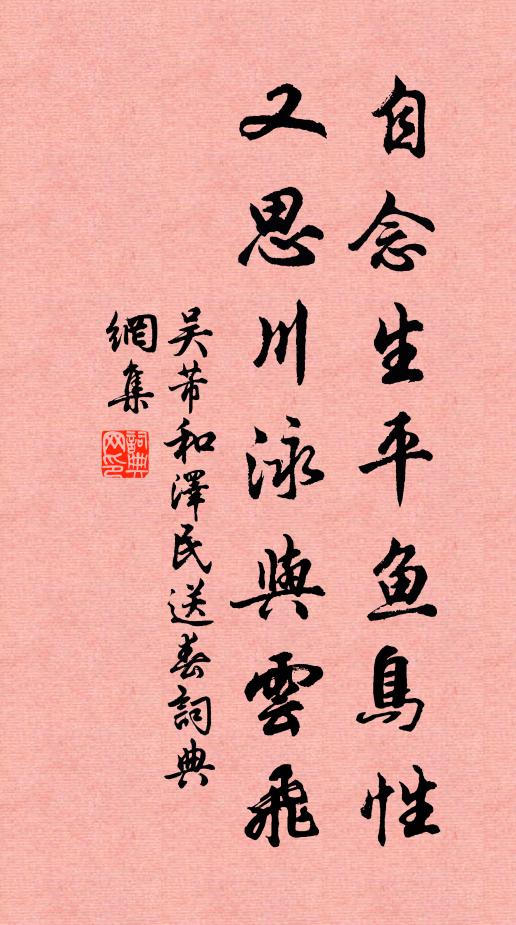 自念生平鱼鳥性
又思川泳與雲飛
吴芾和澤民送春詞典
網集
詞典网印